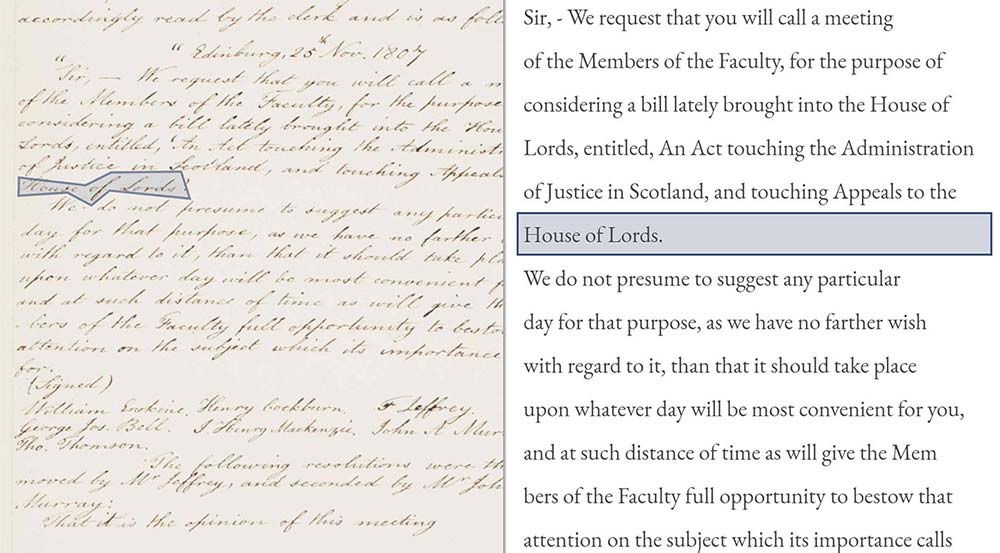 accordingly read by the clerk and is as foll
" " Edinburgh, 25th Nov. 1807
"Sir, — We request that you will call a m
of the Members of the Faculty, for the purpose
considering a bill lately brought into the Hou
Lords, entitled, 'An Act touching the Administr
of Justice in Scotland, and touching Appeals
House of Lords'.
We do not presume to suggest any partic
day for that purpose, as we have no farther
with regard to it, than that it should take pla
upon whatever day will be most convenient f
and at such distance of time as will give th
bers of the Faculty full opportunity to besto
attention on the subject which its importance
for.
(Signed)
William Erskine. Henry Cockburn. F Jeffrey.
George Jos. Bell. J. Henry Mackenzie. John A Mur
Tho. Thomson.
The following resolutions were th
moved by Mr Jeffrey, and seconded by Mr Joh
Murray:
That it is the opinion of this meeting
Sir, - We request that you will call a meeting
of the Members of the Faculty, for the purpose of
considering a bill lately brought into the House of
Lords, entitled, An Act touching the Administration
of Justice in Scotland, and touching Appeals to the
House of Lords.
We do not presume to suggest any particular
day for that purpose, as we have no farther wish
with regard to it, than that it should take place
upon whatever day will be most convenient for you,
and at such distance of time as will give the Mem
bers of the Faculty full opportunity to bestow that
attention on the subject which its importance calls